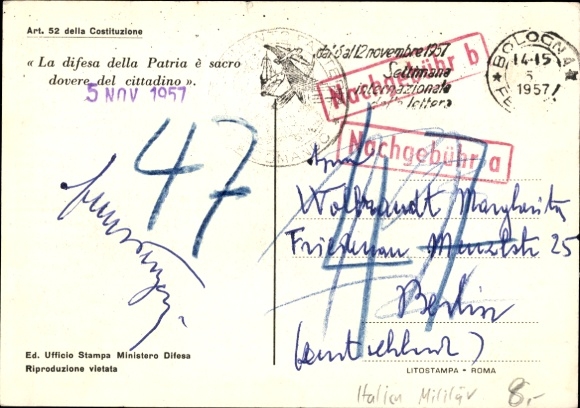 Art. 52 della Costituzione
« La difesa della Patria è sacro
dovere del cittadino ».
5 NOV 1957
dal 6 al 12 novembre 1957
Settimana
internazionale
lettera
BOLOGNA
14-15
5
1957
Nachgebühr b
Nachgebühr a
47
47
Wolbrandt Margherita
Friedenau 25
Berlin
Ed. Ufficio Stampa Ministero Difesa
Riproduzione vietata
LITOSTAMPA - ROMA
Italien Militär 8,-